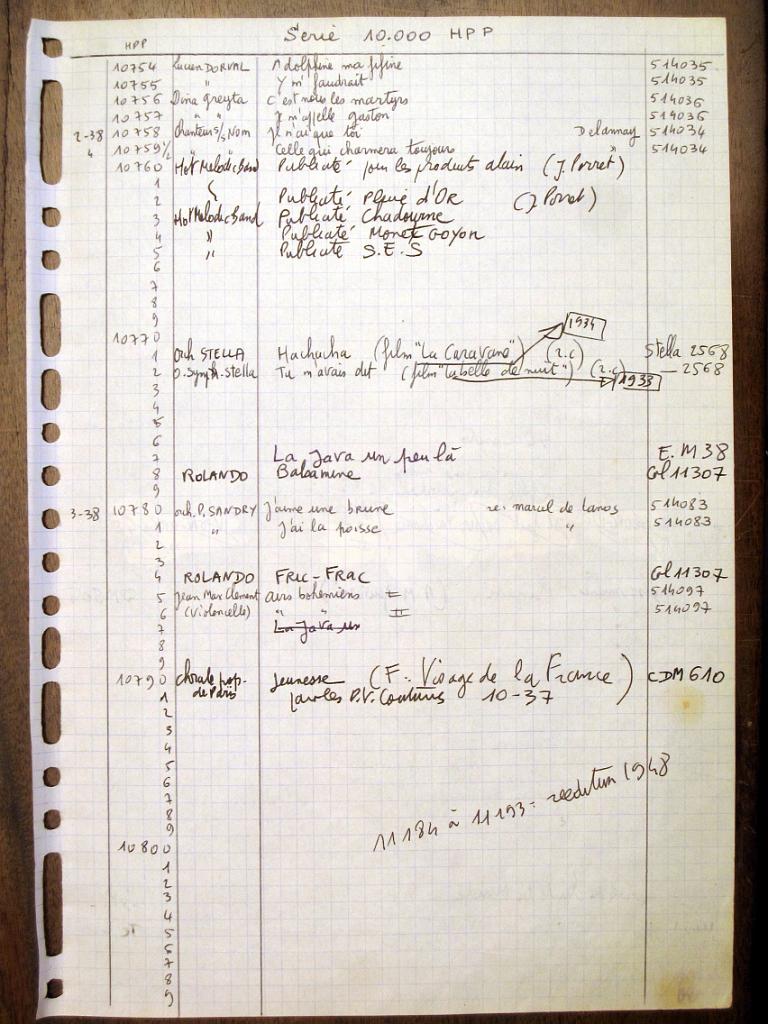 Serie 10.000 HPP
HPP
10754 Lucien DORVAL Adolphine ma fifine 514035
10755 " Y m' faudrait 514035
10756 Dina Greyta C'est nous les martyrs 514036
10757 " " Je m'appelle Gaston 514036
2-38 10758 Chanteur s/s Nom Je n'ai que toi Delannay 514034
" 10759½ " " Celle qui charmera toujours " 514034
10760 Hot Melodic Band Publicité pour les produits alain (J. Porret)
1
2 Publicité Pluie d'Or (J Porret)
3 Hot Melodic Band Publicité Chadourne
4 " Publicité Monet Goyon
5 " Publicité S.E.S
6
7
8
9
10770 1934
1 Orch STELLA Hachucha (film "La Caravane") (2.c) Stella 2568
2 O. Symph. Stella Tu m'avais dit (film "La belle de nuit") (2.c) 1933 — 2568
3
4
5
6
7 La Java un peu là E.M 38
8 ROLANDO Balsamine Col 11307
9
3-38 10780 orch. P. SANDRY J'aime une brune re: marcel de Lanos 514083
1 " J'ai la poisse " 514083
2
3
4 ROLANDO FRIC-FRAC Col 11307
5 Jean Max Clement airs bohemiens I 514097
6 (Violoncelle) " " II 514097
7 La Java un
8
9
10790 Chorale pop. Jeunesse (F: Visage de la France) CDM 610
1 de Paris paroles P.V. Couturis 10-37
2
3
4
5
6
7
8
9 11184 à 11193 = reedition 1948
10800
1
2
3
4
5
6
7
8
9